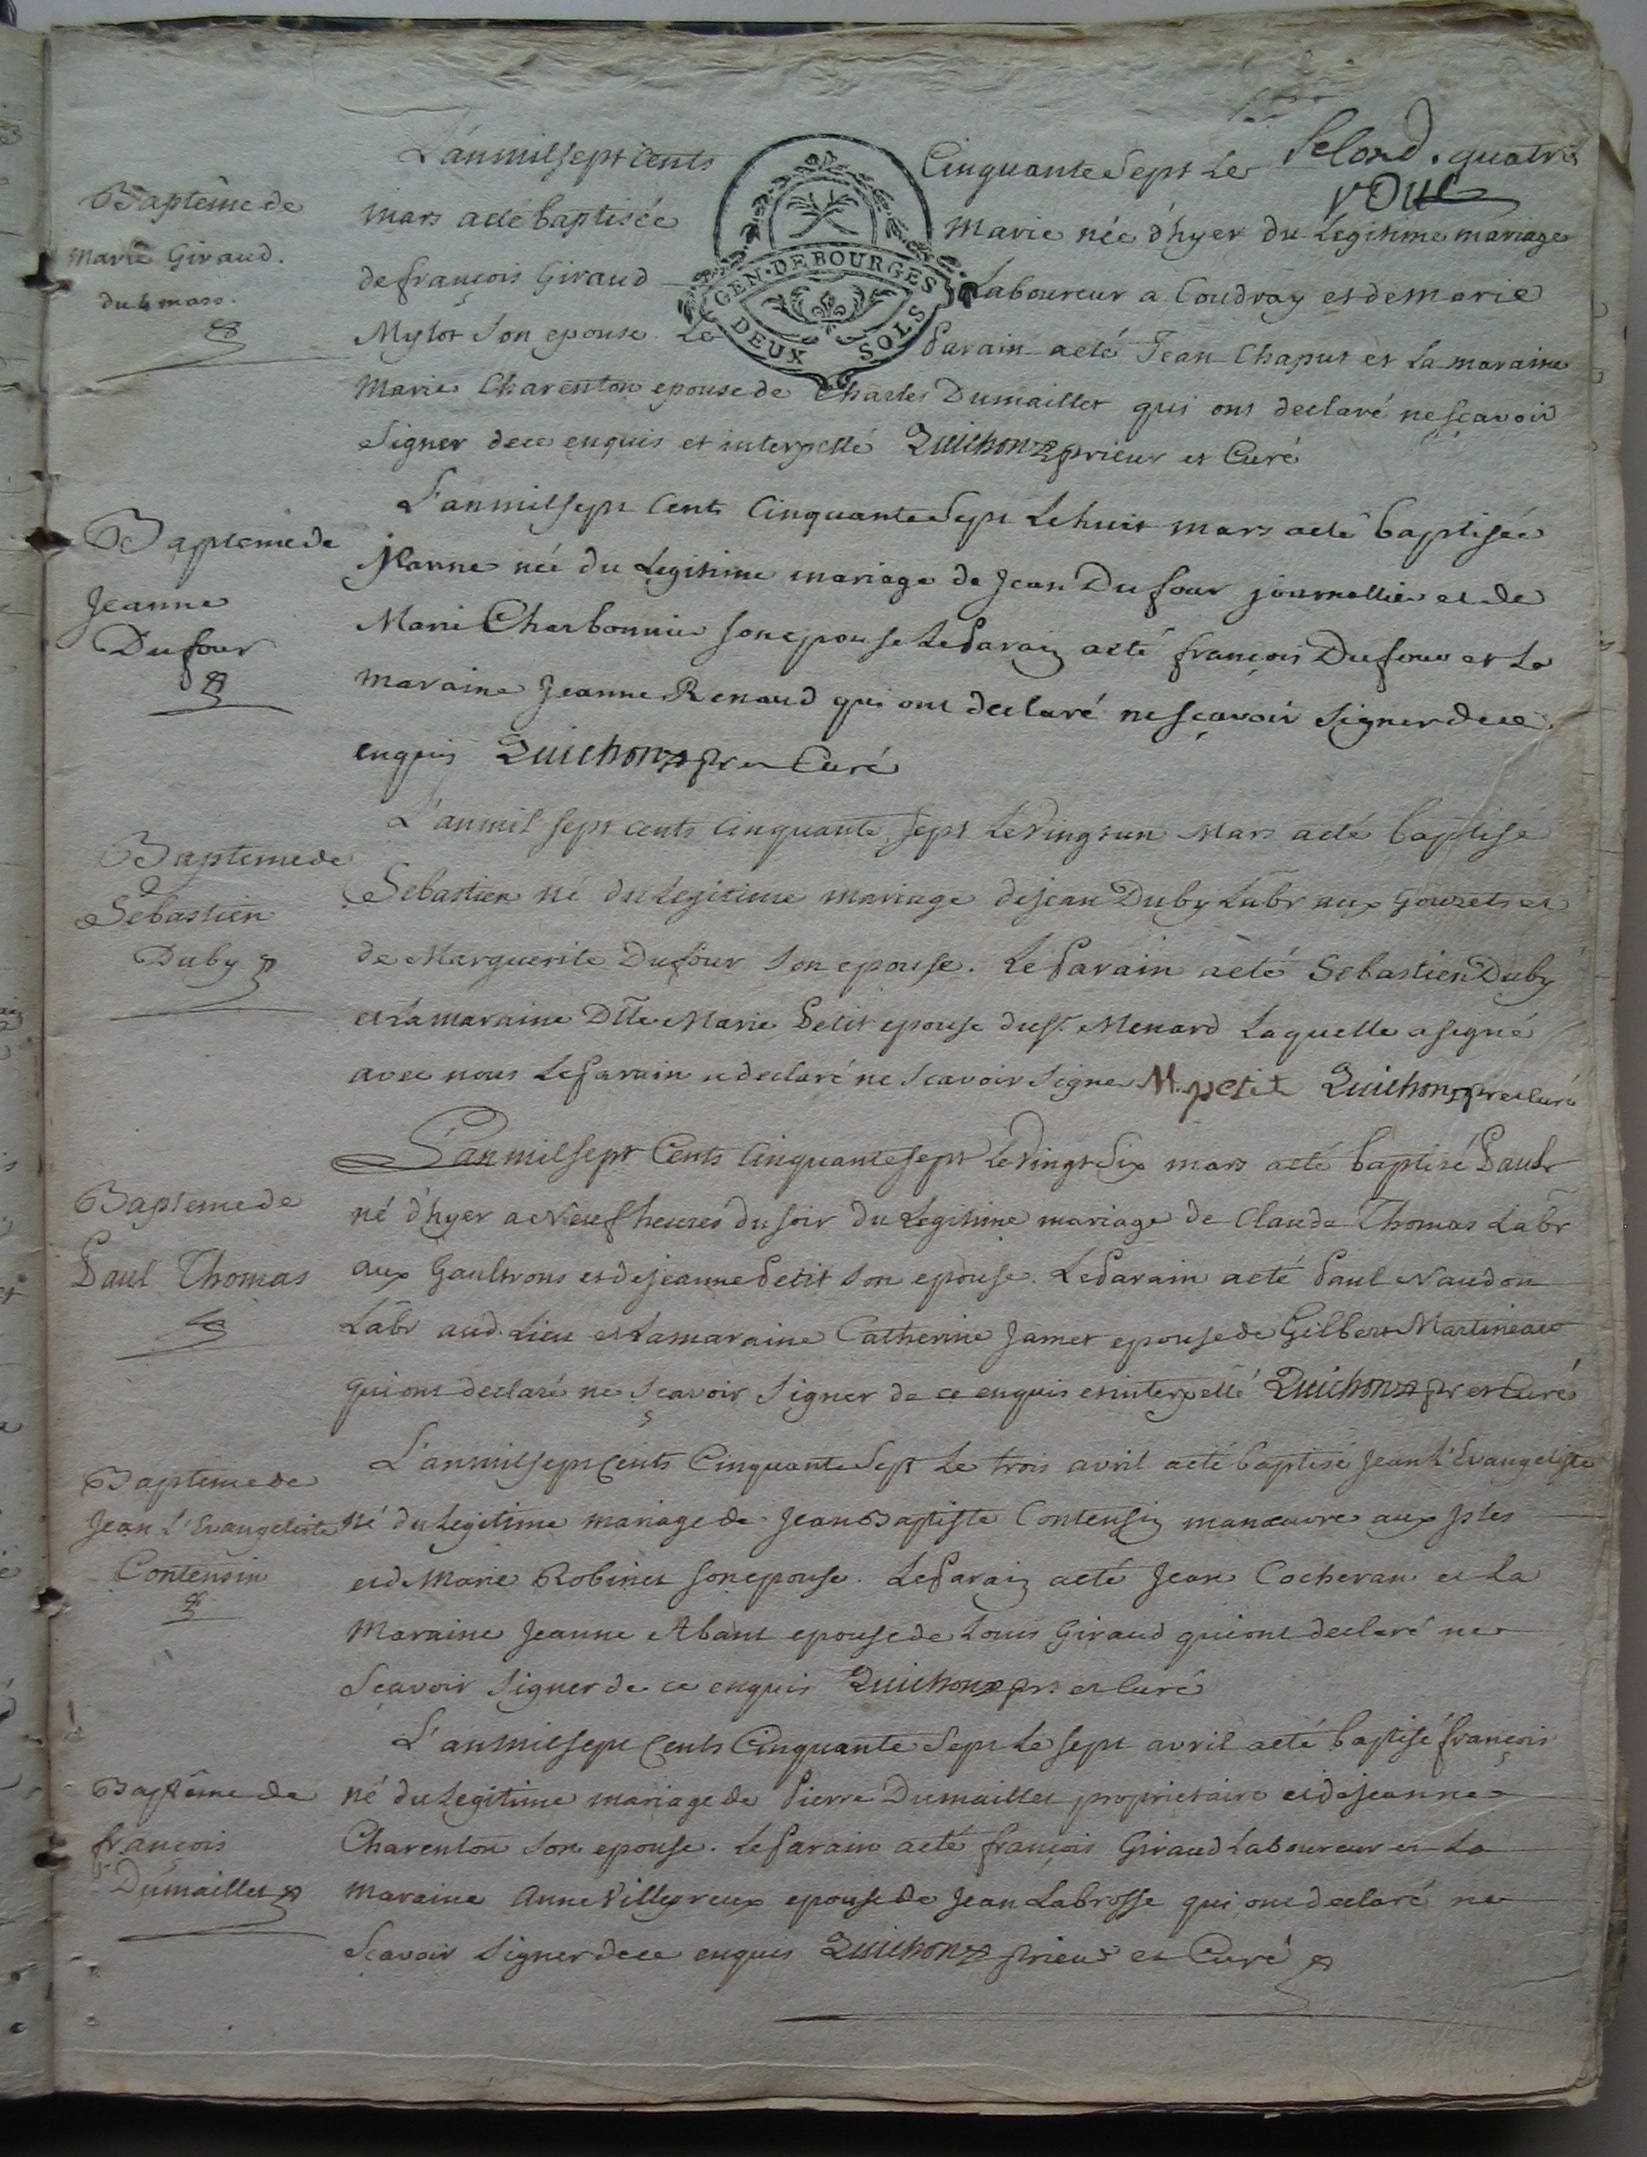 Second. quatre
L'an mil sept Cents Cinquante Sept Le
Baptême de
Marie Giraud.
du 4 mars.
mars a eté baptisée Marie née d'hyer du Legitime mariage
de françois Giraud Laboureur a Coudray et de Marie
Mylot Son epouse Le Parain a eté Jean Chaput et La maraine
Marie Charenton epouse de Charles Dumaillet qui ont declaré ne sçavoir
Signer de ce enquis et interpellé Quichon prieur et Curé
GEN. DE BOURGES
DEUX SOLS
Baptême de
Jeanne
Dufour
L'an mil sept Cents Cinquante Sept Le huit mars a eté baptisée
Jeanne née du Legitime mariage de Jean Dufour journallier et de
Marie Charbonnier son epouse Le Parain a eté françois Dufour et La
maraine Jeanne Renaud qui ont declaré ne sçavoir Signer de ce
enquis Quichon pr et Curé
Baptême de
Sebastien
Duby
L'an mil sept cents cinquante sept Le Vingt un Mars a eté baptisé
Sebastien né du Legitime mariage de jean Duby Labr aux Gouzets et
de Marguerite Dufour Son epouse. Le Parain a eté Sebastien Duby
et La maraine Dlle Marie Petit epouse du Sr. Menard Laquelle a signé
avec nous Le Parain a declaré ne Scavoir Signer M. petit Quichon pr et Curé
Baptême de
Paul Thomas
L'an mil sept Cents Cinquante sept Le Vingt Six mars a eté baptisé Paul
né d'hyer a Neuf heures du soir du Legitime mariage de Claude Thomas Labr
aux Gaultrons et de jeanne Petit Son epouse. Le Parain a eté Paul Naudon
Labr aud. Lieu et La maraine Catherine Jamet epouse de Gilbert Martineau
qui ont declaré ne Sçavoir Signer de ce enquis et interpellé Quichon pr et Curé
Baptême de
Jean L'Evangeliste
Contensin
L'an mil sept Cents Cinquante Sept Le trois avril a eté baptisé Jean L'Evangeliste
né du Legitime mariage de Jean Baptiste Contensin manœuvre aux Isles
et de Marie Robinet son epouse. Le Parain a eté Jean Cocheran et La
Maraine Jeanne Abant epouse de Louis Giraud qui ont declaré ne
Sçavoir Signer de ce enquis Quichon pr. et Curé
Baptême de
françois
Dumaillet
L'an mil sept Cents Cinquante Sept Le sept avril a eté baptisé françois
né du Legitime mariage de Pierre Dumaillet proprietaire et de jeanne
Charenton Son epouse. Le Parain a eté françois Giraud Laboureur et La
Maraine Anne Villepreux epouse de Jean Labrosse qui ont declaré ne
Scavoir Signer de ce enquis Quichon prieur et Curé